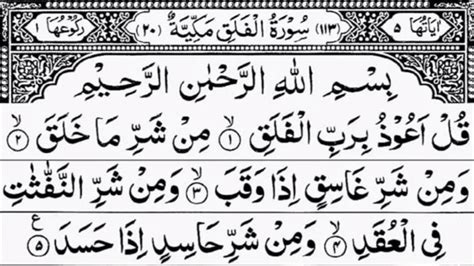 اٰيَاتُهَا ٥ (١١٣) سُوْرَةُ الْفَلَقِ مَكِّيَّةٌ (٢٠) رُكُوْعُهَا ١
بِسْمِ اللهِ الرَّحْمٰنِ الرَّحِيْمِ
قُلْ اَعُوْذُ بِرَبِّ الْفَلَقِ ۙ‏﴿۱﴾ مِنْ شَرِّ مَا خَلَقَ ۙ‏﴿۲﴾
وَمِنْ شَرِّ غَاسِقٍ اِذَا وَقَبَ ۙ‏﴿۳﴾ وَمِنْ شَرِّ النَّفّٰثٰتِ
فِى الْعُقَدِ ۙ‏﴿۴﴾ وَمِنْ شَرِّ حَاسِدٍ اِذَا حَسَدَ ﴿۵﴾ ع